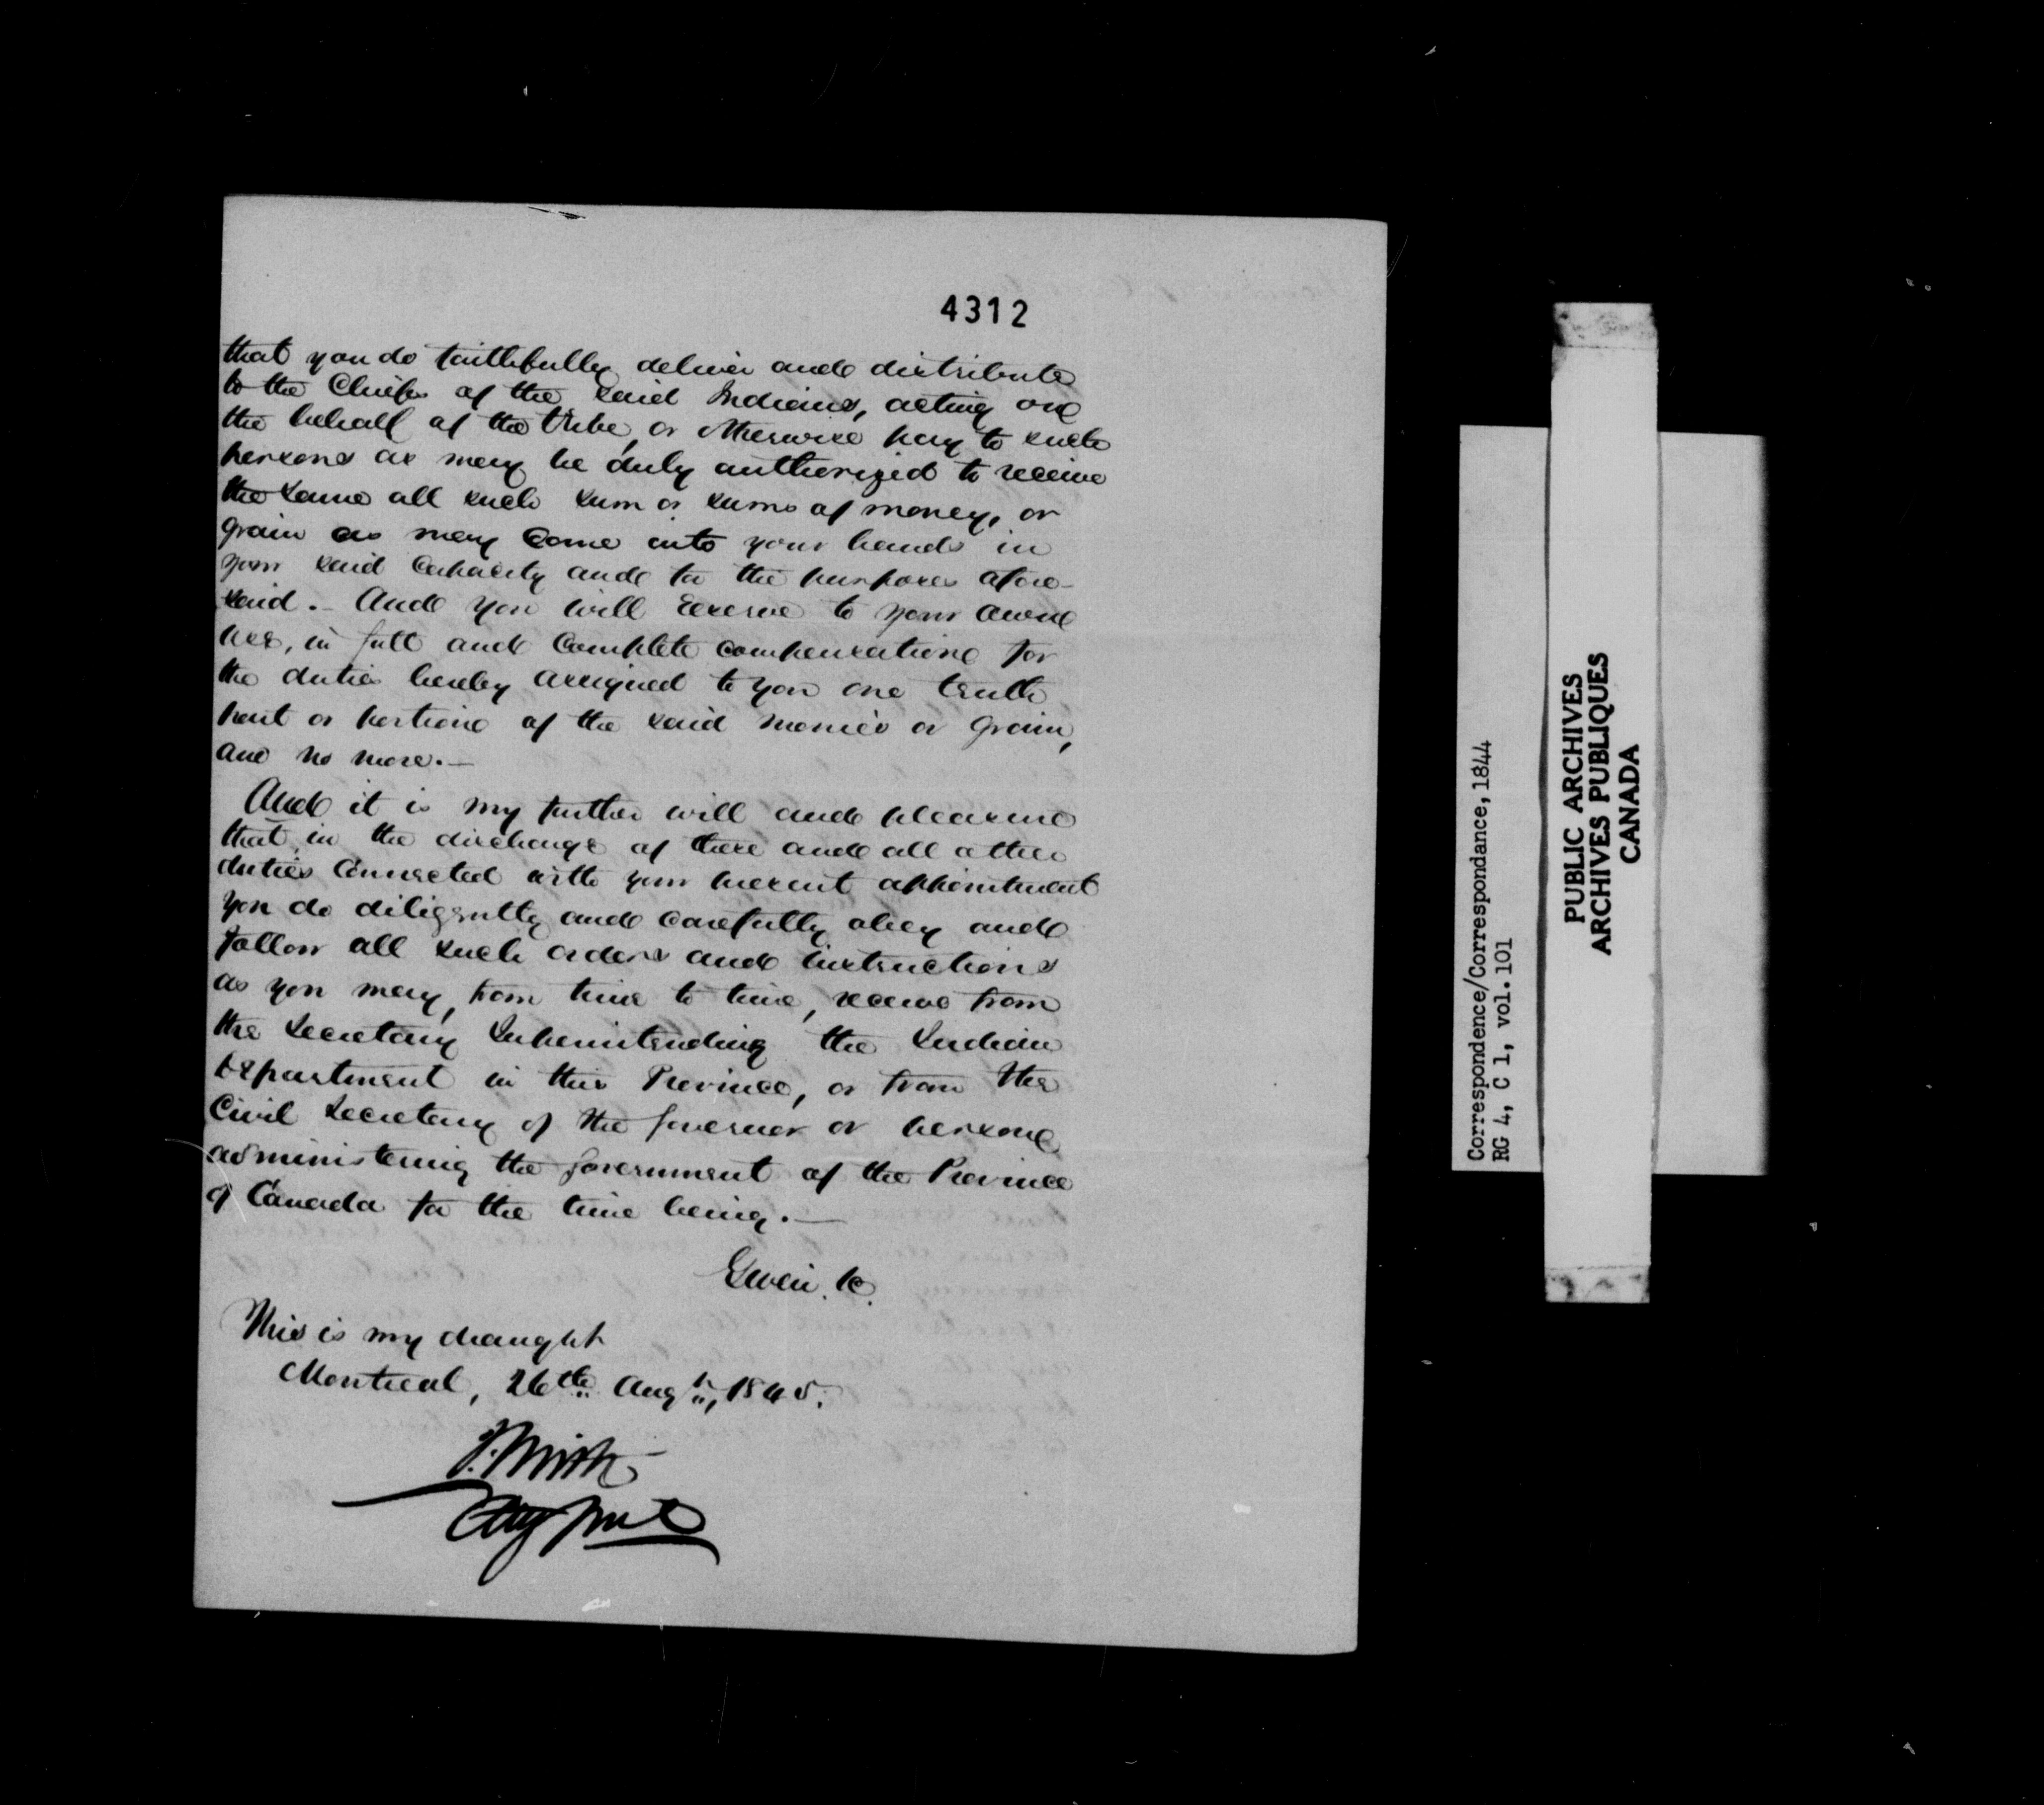 4312
that you do faithfully deliver and distribute
to the Chiefs of the said Indians, acting on
the behalf of the tribe, or otherwise pay to such
persons as may be duly authorized to receive
the same all such sum or sums of money, or
grain as may come into your hands in
your said Capacity and for the purposes afore-
said. - And you will reserve to your own
use, in full and complete compensation for
the duties hereby assigned to you one tenth
part or portion of the said monies or grain,
and no more. -
And it is my further will and pleasure
that, in the discharge of these and all other
duties connected with your present appointment
you do diligently and carefully obey and
follow all such orders and instructions
as you may, from time to time, receive from
the Secretary Superintending the Indian
Department in this Province, or from the
Civil Secretary of the Governor or person
administering the Government of the Province
of Canada for the time being. -
Given. &c.
This is my draught
Montreal, 26th Augt, 1845.
Correspondence/Correspondance, 1844
RG 4, C 1, vol. 101
PUBLIC ARCHIVES
ARCHIVES PUBLIQUES
CANADA